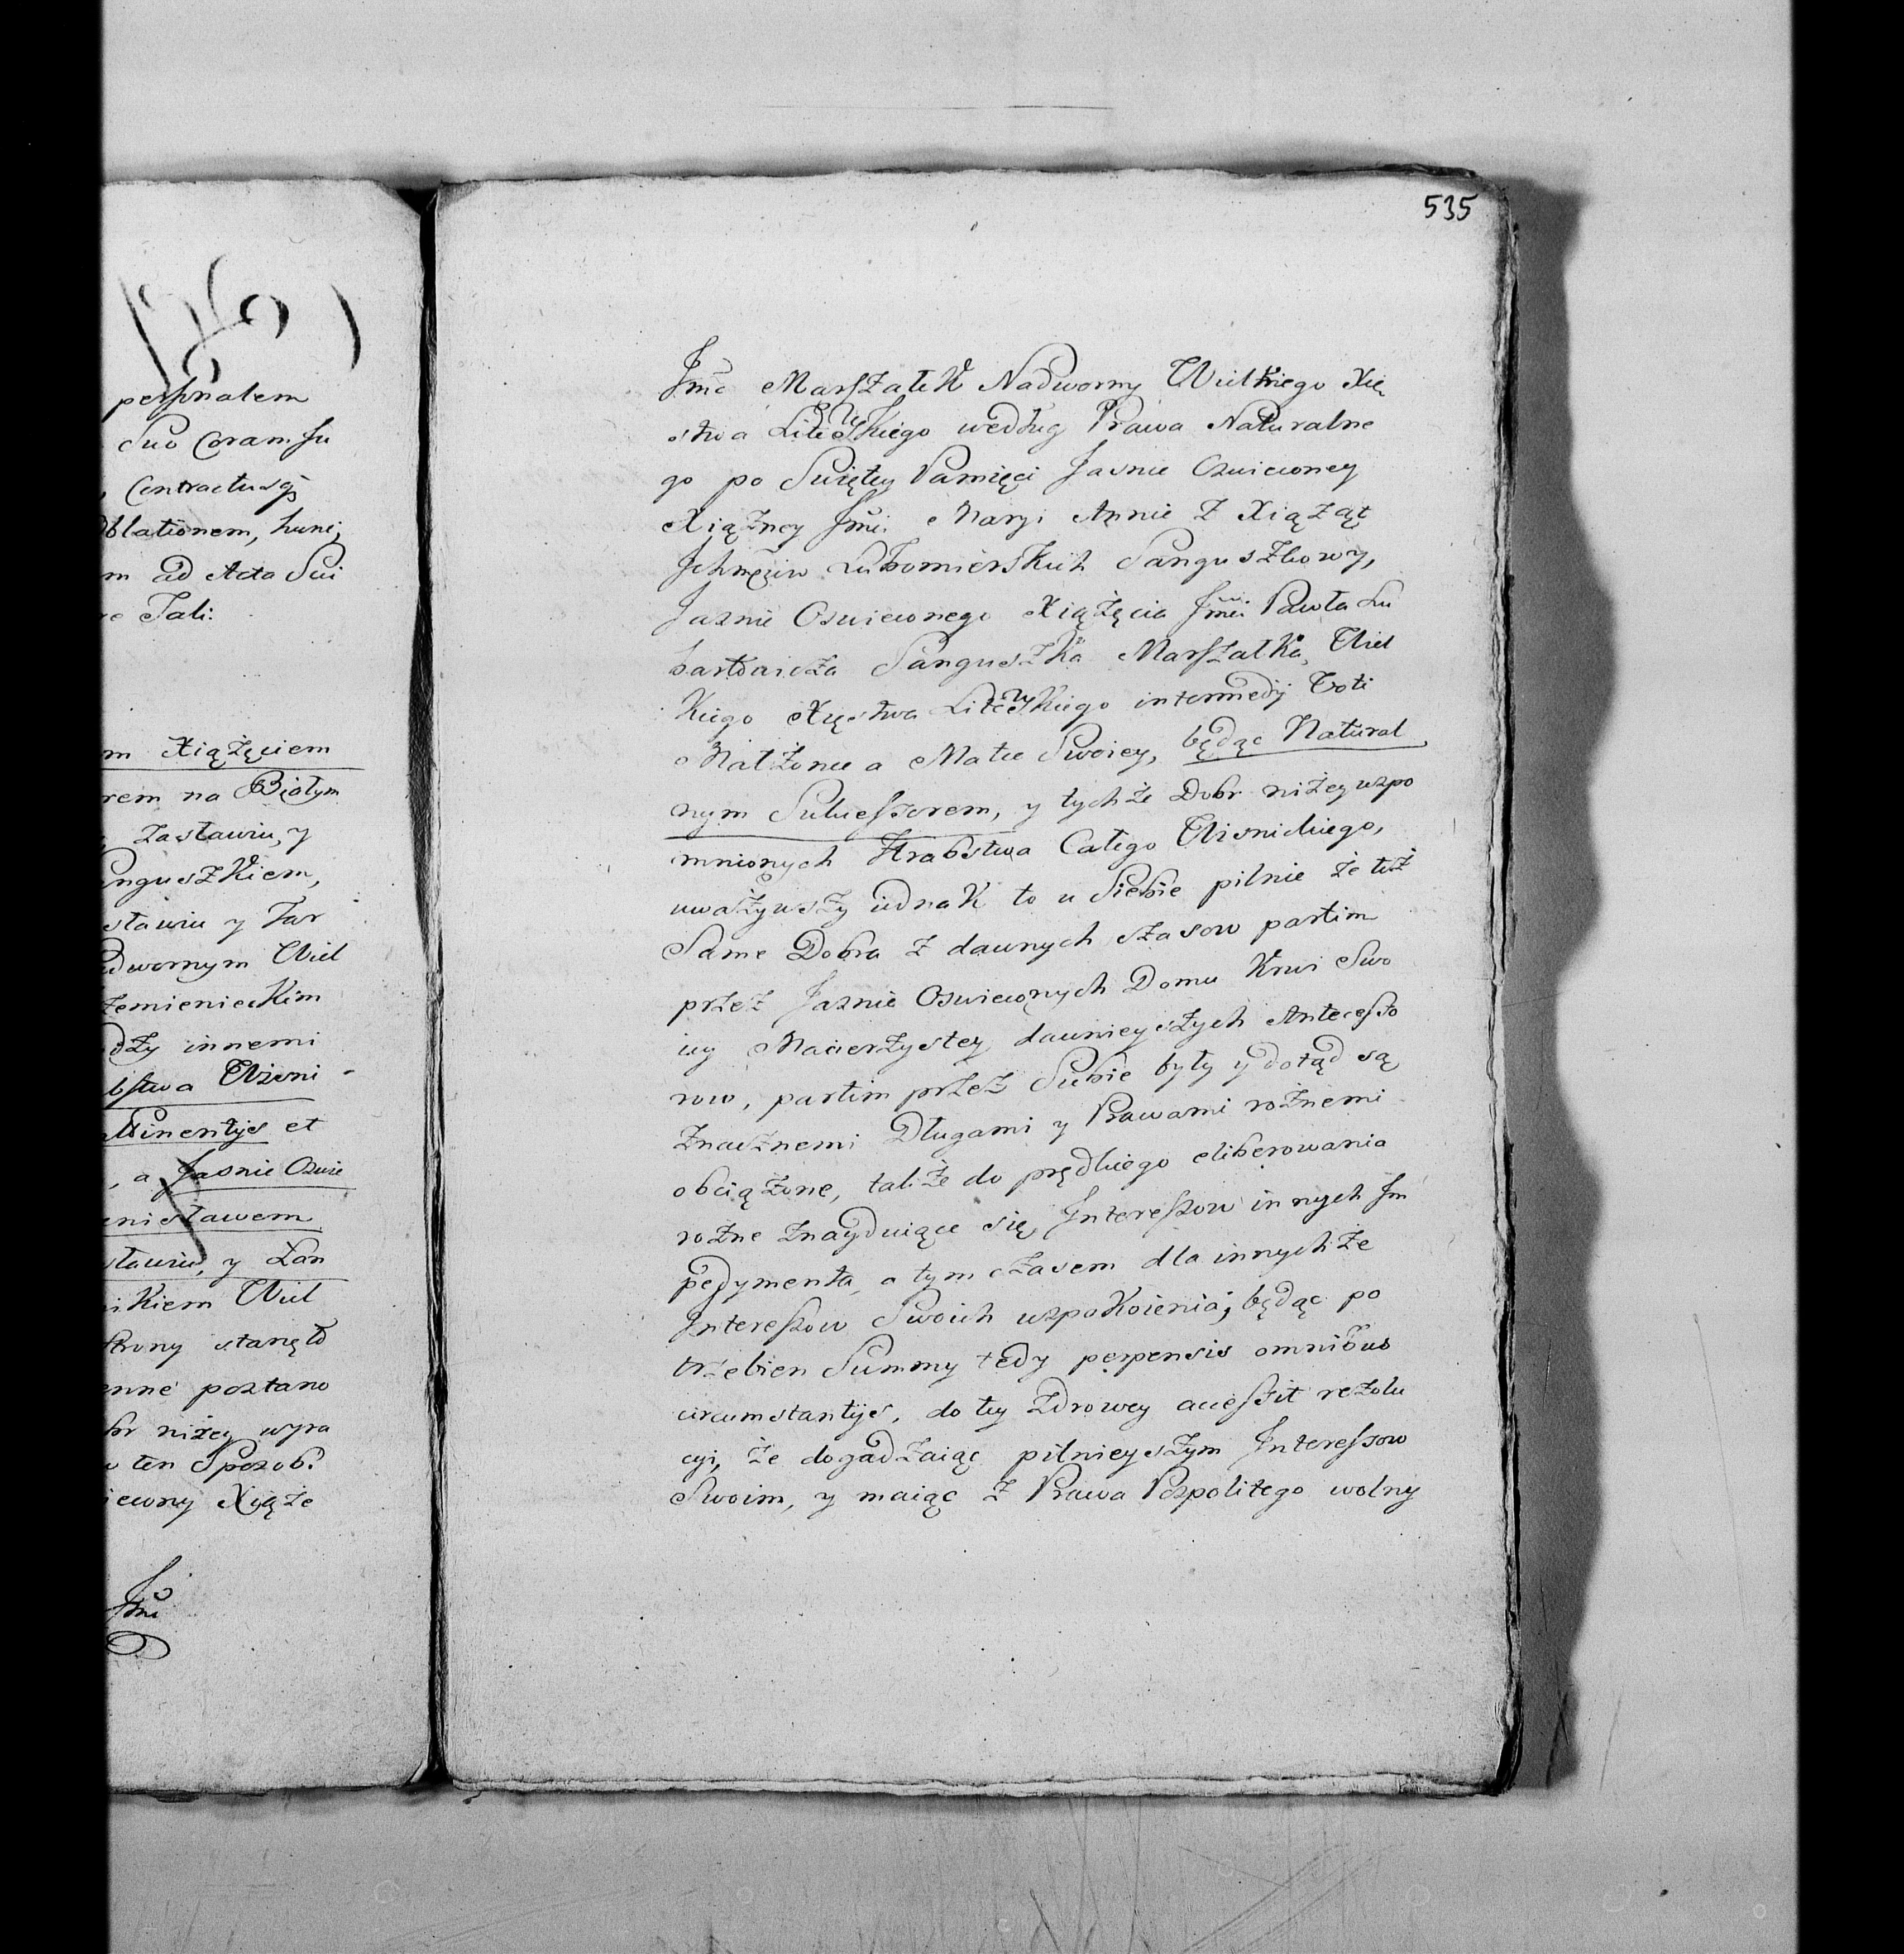 personatem
Suo Coram Ju
Contractusq
Oblationem, hunc
m ad Acta Sui
re Tali:
m Xiążęciem
rem na Białym
Zasławiu, y
anguszkiem,
sławiu y Tar
adwornym Wiel
zemienieckim
dzy innemi
bstwa Wisni
Attinentijs et
, a Jasnie Oswie
anisławem
sławiu, y Łan
nikiem Wiel
strony stanęło
enne postano
br niżey wyra
w ten Sposob:
iecony Xiąże
Jmć
535
Jmć Marszałek Nadworny Wielkiego Xię
stwa Litewskiego według Prawa Naturalne
go po Swiętey Pamięci Jasnie Oswieconey
Xiążney Jmci Maryi Annie z Xiążąt
Ichmciów Lubomierskich Sanguszkowy,
Jasnie Oswieconego Xiążęcia Jmci Pawła Lu
bartowicza Sanguszka Marszałka Wiel
kiego Xięstwa Litewskiego intermedij Voti
Małżonce a Matce Swoiey, będąc Natural
nym Sukcessorem, y tychże Dobr niżey wspo
mnionych Hrabstwa Całego Wisnickiego,
uważywszy iednak to u Siebie pilnie że też
Same Dobra z dawnych czasow partim
przez Jasnie Oswieconych Domu Krwi Swo
iey Macierzystey dawnieyszych Antecesso
row, partim przez Siebie były y dotąd są
Znacznemi Długami y Prawami rożnemi
obciążone, także do prędkiego eliberowania
rożne znayduiące się Interessow innych Im
pedymenta, a tym czasem dla innychże
Interessow Swoich uspokoienia, będąc po
trzebien Summy tedy perpensis omnibus
circumstantijs, do tey zdrowey accessit rezolu
cyi, że dogadzaiąc pilnieyszym Interessow
Swoim, y maiąc z Prawa Pospolitego wolny